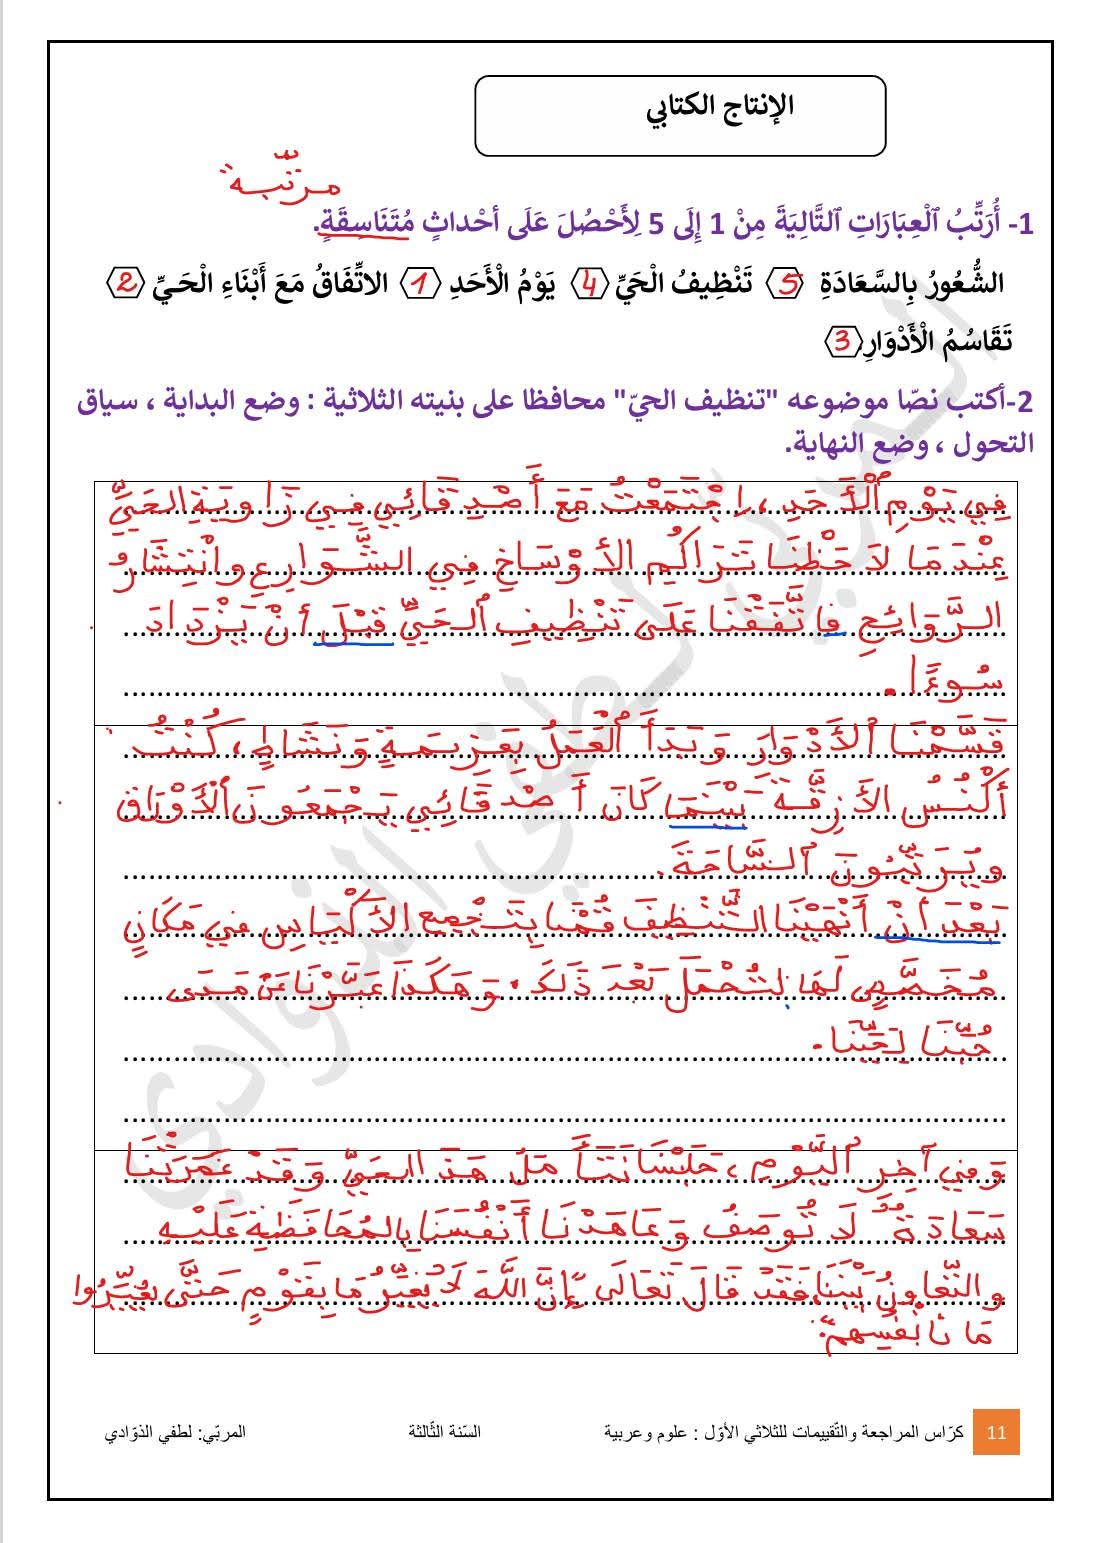 الإنتاج الكتابي
مرتّبة
1- أُرَتِّبُ ٱلْعِبَارَاتِ ٱلتَّالِيَةَ مِنْ 1 إِلَى 5 لِأَحْصُلَ عَلَى أحْداثٍ مُتَنَاسِقَةٍ.
الشُّعُورُ بِالسَّعَادَةِ 5 تَنْظِيفُ الْحَيِّ 4 يَوْمُ الْأَحَدِ 1 الاتِّفَاقُ مَعَ أَبْنَاءِ الْحَيِّ 2
تَقَاسُمُ الْأَدْوَارِ 3
2-أكتب نصّا موضوعه "تنظيف الحيّ" محافظا على بنيته الثلاثية : وضع البداية ، سياق
التحول ، وضع النهاية.
فِي يَوْمِ ٱلْأَحَدِ ، اِجْتَمَعْتُ مَعَ أَصْدِقَائِي فِي زَاوِيَةِ الحَيِّ
عِنْدَمَا لَاحَظْنَا تَرَاكُمِ الأَوْسَاخِ فِي الشَّوَارِعِ وانْتِشَارُ
الرَّوَائِحِ فَاتَّفَقْنَا عَلَى تَنْظِيفِ ٱلحَيِّ قَبْلَ أَنْ يَزْدَادَ
سُوءًا.
قَسَّمْنَا ٱلأَدْوَارَ وَبَدَأَ ٱلْعَمَلُ بِعَزِيمَةٍ وَنَشَاطٍ ، كُنْتُ
أَكْنُسُ الأَزِقَّةَ بَيْنَمَا كَانَ أَصْدِقَائِي يَجْمَعُونَ ٱلأَوْرَاقَ
وَيُرَتِّبُونَ ٱلسَّاحَةَ.
بَعْدَ أَنْ أَنْهَيْنَا التَّنْظِيفَ قُمْنَا بِتَجْمِيعِ الأَكْيَاسِ فِي مَكَانٍ
مُخَصَّصٍ لَهَا لِتُحْمَلَ بَعْدَ ذَلِكَ. وَهَكَذَا عَبَّرْنَا عَنْ مَدَى
حُبِّنَا لِحَيِّنَا.
وَفِي آخِرِ ٱلْيَوْمِ ، جَلَسْنَا نَتَأَمَّلُ هَذَا الحَيَّ وَقَدْ غَمَرَتْنَا
سَعَادَةٌ لَا تُوصَفُ وَعَاهَدْنَا أَنْفُسَنَا بِالمُحَافَظَةِ عَلَيْهِ
والتَّعَاوُنِ بَيْنَنَا فَقَدْ قَالَ تَعَالَى "إِنَّ اللَّهَ لَا يُغَيِّرُ مَا بِقَوْمٍ حَتَّى يُغَيِّرُوا
مَا بِأَنْفُسِهِمْ".
11 كرّاس المراجعة والتّقييمات للثلاثي الأوّل : علوم وعربية السّنة الثّالثة المربّي: لطفي الذوّادي
المربّي لطفي الذوّادي